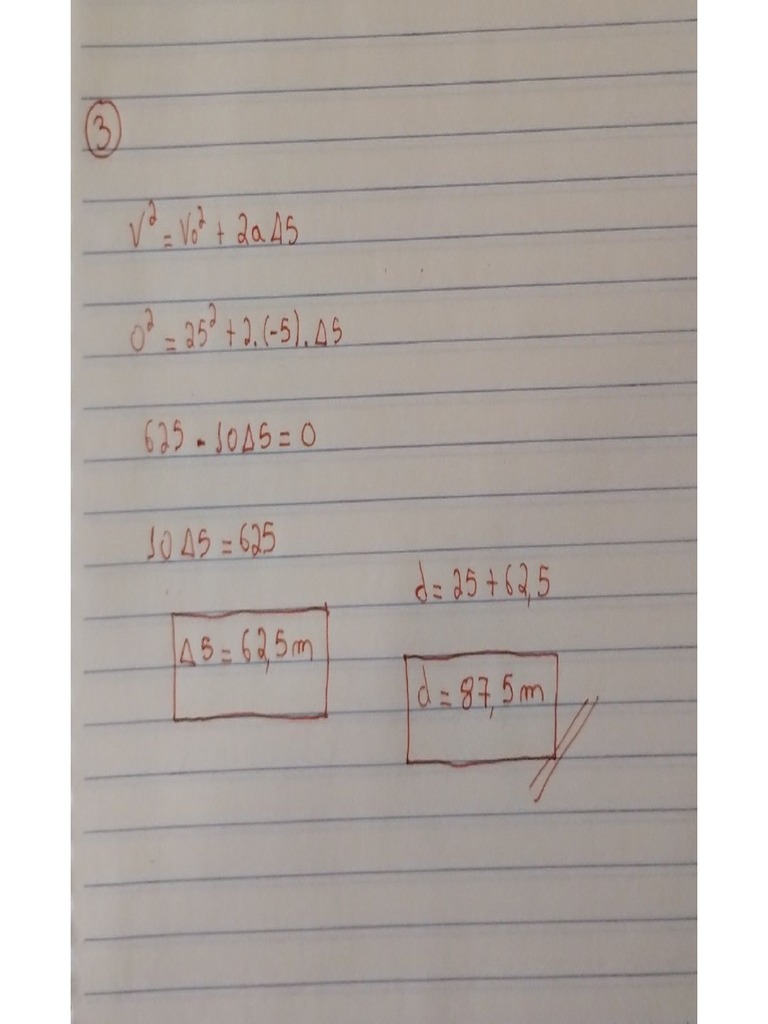 3
V² = V₀² + 2aΔS
0² = 25² + 2.(-5).ΔS
625 - 10ΔS = 0
10ΔS = 625
d = 25 + 62,5
ΔS = 62,5m
d = 87,5m